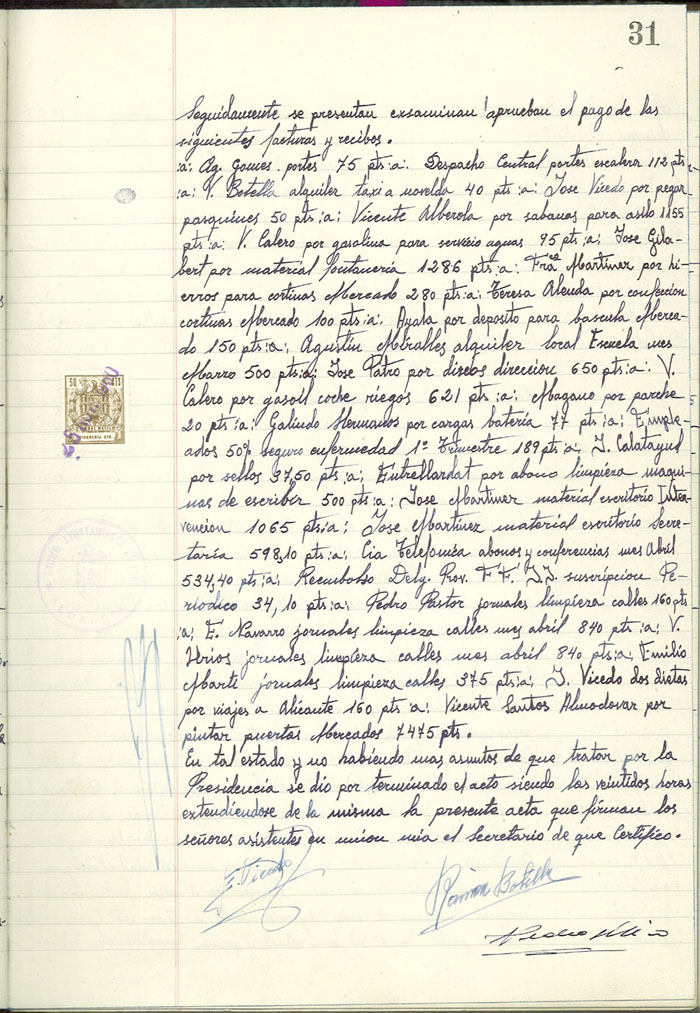 31
Seguidamente se presentan exsaminan i aprueban el pago de las
siguientes facturas y recibos.
:a: Ag. Gomes portes 75 pts:a: Despacho Central portes escalera 112 pts
:a: V. Botella alquiler taxi a novelda 40 pts:a: Jose Vicedo por pegar
pasquines 50 pts:a: Vicente Alberola por sabanas para asilo 1155
pts:a: V. Calero por gasolina para servicio aguas 95 pts:a: Jose Gila-
bert por material fontaneria 1286 pts:a: Frac Martinez por hi-
erros para cortinas Mercado 280 pts:a: Teresa Alenda por confeccion
cortinas Mercado 100 pts:a: Ayala por deposito para bascula Merca-
do 150 pts:a: Agustin Miralles alquiler local Escuela mes
Marzo 500 pts:a: Jose Patro por discos direccion 650 pts:a: V.
Calero por gasoil coche riegos 621 pts:a: Magano por parche
20 pts:a: Galindo Hermanos por cargas bateria 77 pts:a: Emple-
ados 50% seguro enfermedad 1º Trimestre 189 pts:a: J. Calatayud
por sellos 37,50 pts:a: Entrellardat por abono limpieza maqui-
nas de escribir 500 pts:a: Jose Martinez material escritorio Inter-
vencion 1065 pts:a: Jose Martinez material escritorio Secre-
taria 598,10 pts:a: Cia Telefonica abonos y conferencias mes Abril
534,40 pts:a: Reembolso Delg. Prov. FF. JJ. suscripcion Pe-
riodico 34,10 pts:a: Pedro Pastor jornales limpieza calles 160 pts
:a: E. Navarro jornales limpieza calles mes abril 840 pts:a: V.
Urios jornales limpieza calles mes abril 840 pts:a: Emilio
Marti jornales limpieza calles 375 pts:a: J. Vicedo dos dietas
por viajes a Alicante 160 pts:a: Vicente Santos Almodovar por
pintar puertas Mercados 7475 pts.
En tal estado y no habiendo mas asuntos de que tratar por la
Presidencia se dio por terminado el acto siendo las veintidos horas
extendiendose de la misma la presente acta que firman los
señores asistentes en union mia el Secretario de que Certifico.
Vicedo
Ramon Botella
Pedro